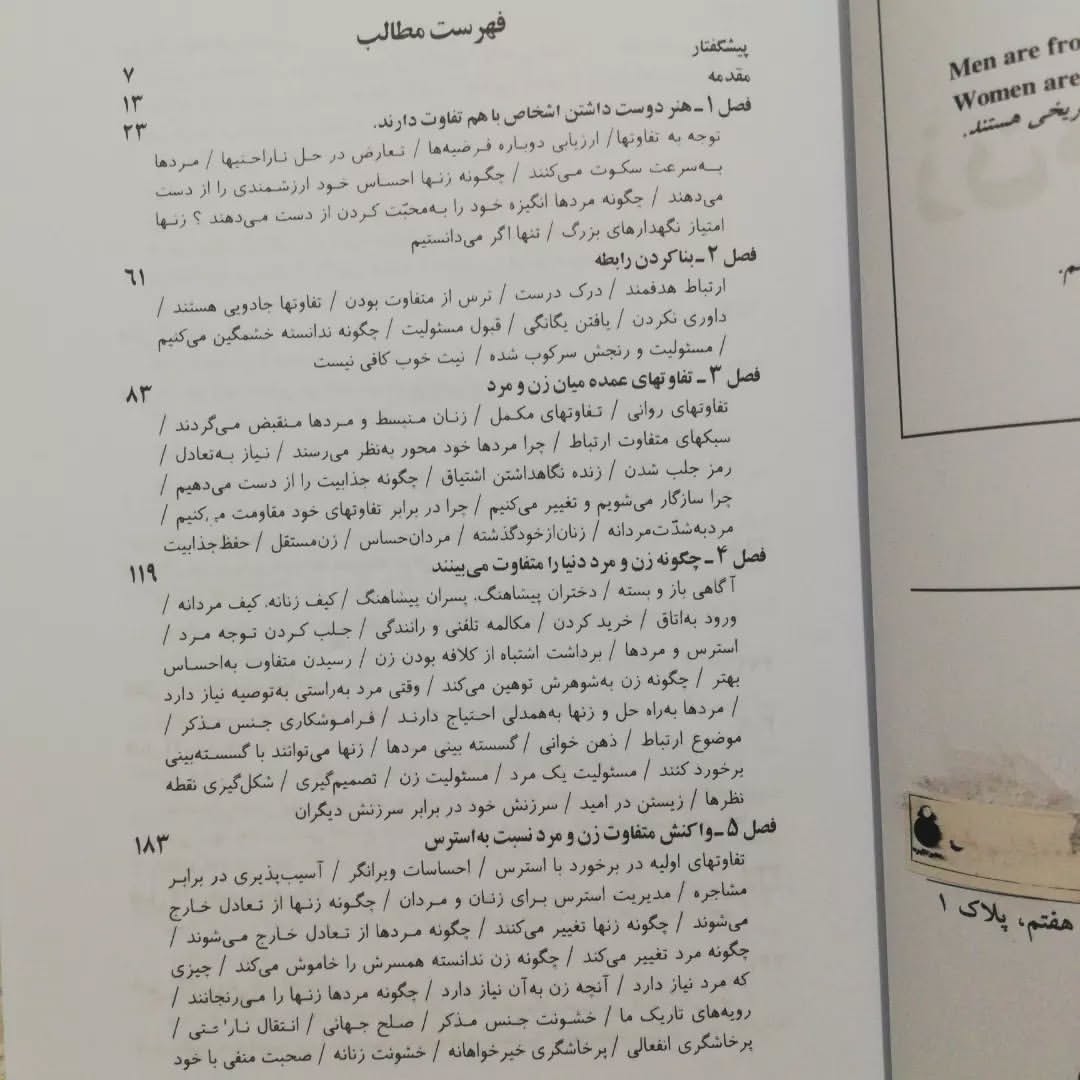 فهرست مطالب
پیشگفتار ۷
مقدمه ۱۳
فصل ۱ ـ هنر دوست داشتن اشخاص با هم تفاوت دارند. ۲۳
توجه به تفاوتها/ ارزیابی دوباره فرضیه‌ها / تعارض در حل ناراحتیها / مردها
به‌سرعت سکوت می‌کنند / چگونه زنها احساس خود ارزشمندی را از دست
می‌دهند / چگونه مردها انگیزه خود را به‌محبّت کردن از دست می‌دهند ؟ زنها
امتیاز نگهدارهای بزرگ / تنها اگر می‌دانستیم
فصل ۲ ـ بنا کردن رابطه ۶۱
ارتباط هدفمند / درک درست / ترس از متفاوت بودن / تفاوتها جادویی هستند /
داوری نکردن / یافتن یگانگی / قبول مسئولیت / چگونه ندانسته خشمگین می‌کنیم
/ مسئولیت و رنجش سرکوب شده / نیت خوب کافی نیست
فصل ۳ ـ تفاوتهای عمده میان زن و مرد ۸۳
تفاوتهای روانی / تفاوتهای مکمل / زنان منبسط و مردها منقبض می‌گردند /
سبکهای متفاوت ارتباط / چرا مردها خود محور به‌نظر می‌رسند / نیاز به‌تعادل /
رمز جلب شدن / زنده نگاهداشتن اشتیاق / چگونه جذابیت را از دست می‌دهیم /
چرا سازگار می‌شویم و تغییر می‌کنیم / چرا در برابر تفاوتهای خود مقاومت می‌کنیم /
مردبه‌شدّت‌مردانه / زنان‌ازخودگذشته / مردان‌حساس / زن‌مستقل / حفظ‌جذابیت
فصل ۴ ـ چگونه زن و مرد دنیا را متفاوت می‌بینند ۱۱۹
آگاهی باز و بسته / دختران پیشاهنگ، پسران پیشاهنگ / کیف زنانه، کیف مردانه /
ورود به‌اتاق / خرید کردن / مکالمه تلفنی و رانندگی / جلب کردن توجه مرد /
استرس و مردها / برداشت اشتباه از کلافه بودن زن / رسیدن متفاوت به‌احساس
بهتر / چگونه زن به‌شوهرش توهین می‌کند / وقتی مرد به‌راستی به‌توصیه نیاز دارد
/ مردها به‌راه حل و زنها به‌همدلی احتیاج دارند / فراموشکاری جنس مذکر /
موضوع ارتباط / ذهن خوانی / گسسته بینی مردها / زنها می‌توانند با گسسته‌بینی
برخورد کنند / مسئولیت یک مرد / مسئولیت زن / تصمیم‌گیری / شکل‌گیری نقطه
نظرها / زیستن در امید / سرزنش خود در برابر سرزنش دیگران
فصل ۵ ـ واکنش متفاوت زن و مرد نسبت به‌استرس ۱۸۳
تفاوتهای اولیه در برخورد با استرس / احساسات ویرانگر / آسیب‌پذیری در برابر
مشاجره / مدیریت استرس برای زنان و مردان / چگونه زنها از تعادل خارج
می‌شوند / چگونه زنها تغییر می‌کنند / چگونه مردها از تعادل خارج می‌شوند /
چگونه مرد تغییر می‌کند / چگونه زن ندانسته همسرش را خاموش می‌کند / چیزی
که مرد نیاز دارد / آنچه زن به‌آن نیاز دارد / چگونه مردها زنها را می‌رنجانند /
رویه‌های تاریک ما / خشونت جنس مذکر / صلح جهانی / انتقال /
پرخاشگری انفعالی / پرخاشگری خیرخواهانه / خشونت زنانه / صحبت منفی با خود
Men are fro
Women are
ریخی هستند.
م.
هفتم، پلاک ۱